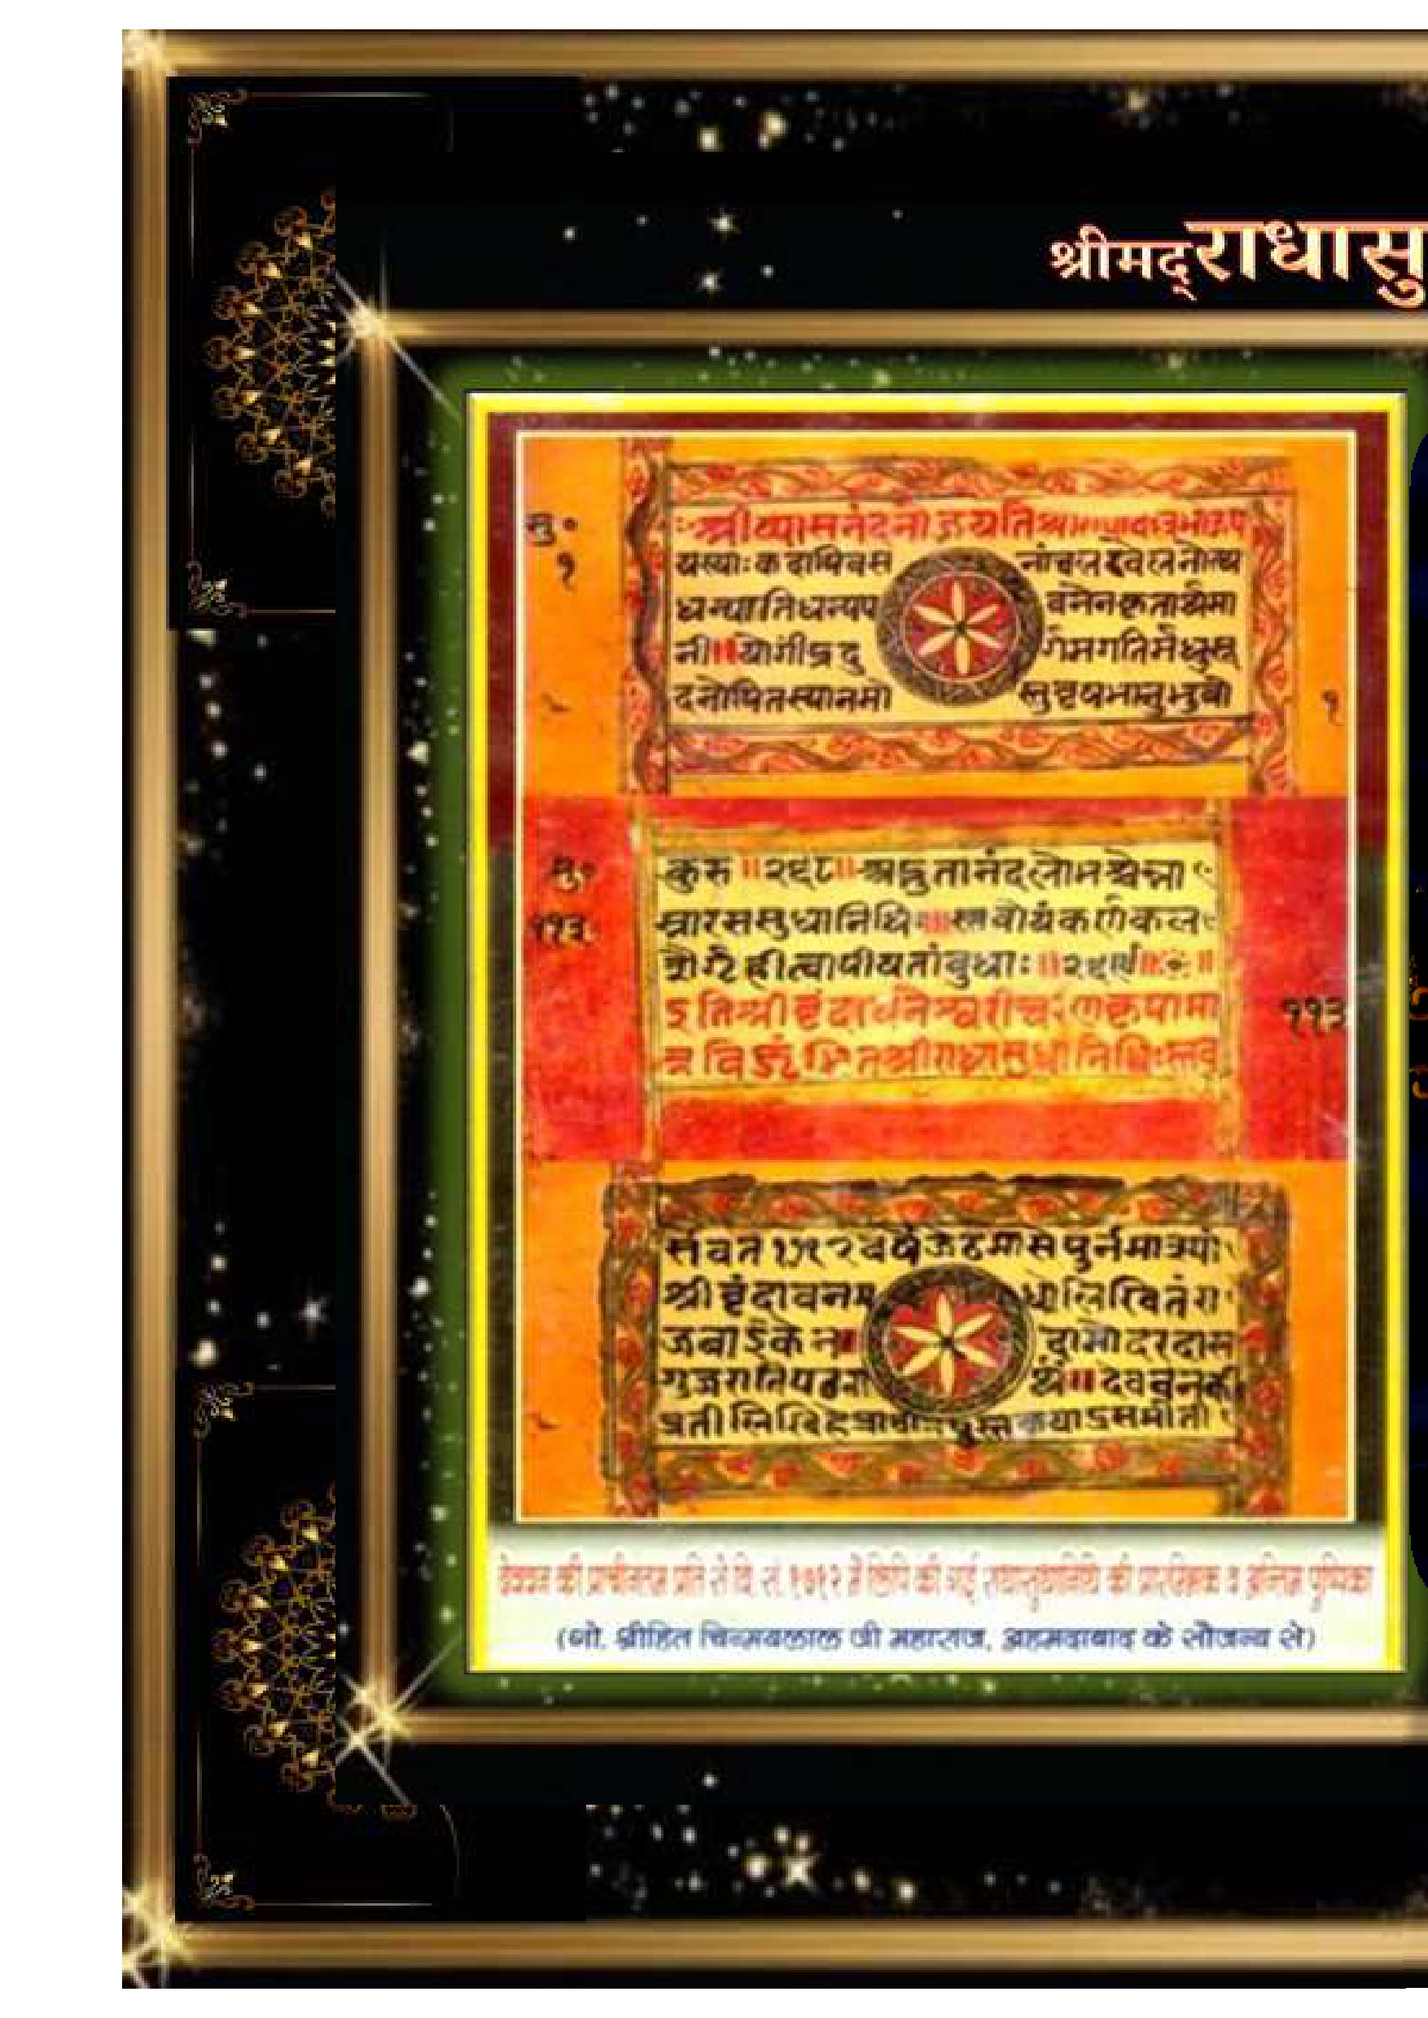 श्रीमद्राधासु
सु॰
१
श्रीव्यासनंदनो जयति
यस्याः कदापि वस नांचल
धन्यातिधन्यप वनेन कृतार्थमा
नी॥योगीं द्रदु र्गमगतिर्मधुसू
दनोपि तस्या नमो स्तु वृषभानुभुवो
१
सु॰
११३
कुरु ॥२६८॥ अद्भुतानंदलोभश्चेन्ना
म्ना रससुधानिधिः॥स्तवोयं कर्णकल
शैर्गृहीत्वा पीयतां बुधाः॥२६९॥
इतिश्रीवृंदावनेश्वरीचरणकृपामा
त्र विजृंभितश्रीराधासुधानिधिःस्तव
११३
संवत १७१२ वर्षे जेठमासे पुर्नमास्यां
श्रीवृंदावनम ध्ये लिखितं रा
जबाईकेन॥ दामोदरदास
गुजराति र्थं॥देवबनकी
प्रती लिखि
देवबन की प्राचीनतम प्रति से वि. सं. १७१२ में लिपि की गई राधासुधानिधि की प्रारम्भिक व अन्तिम पुष्पिका
(गो. श्रीहित चिन्मयलाल जी महाराज, अहमदाबाद के सौजन्य से)